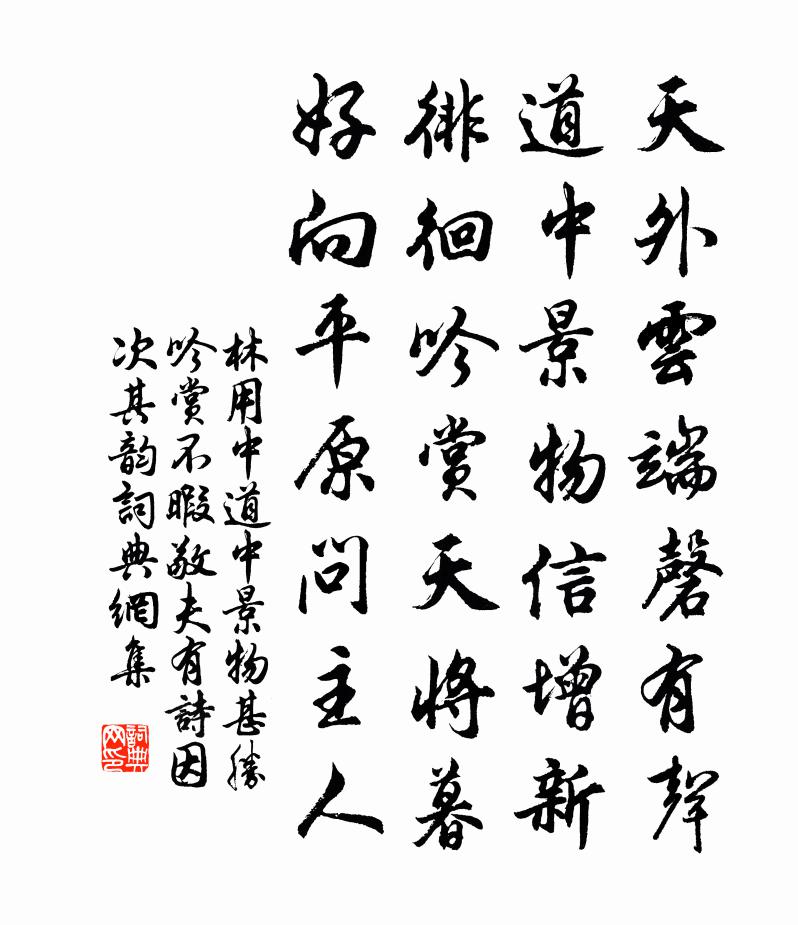 天外雲端磬有聲
道中景物信增新
徘徊吟賞天將暮
好向平原問主人
林用中道中景物甚勝
吟賞不暇敬夫有詩因
次其韵詞典網集
詞典
网印